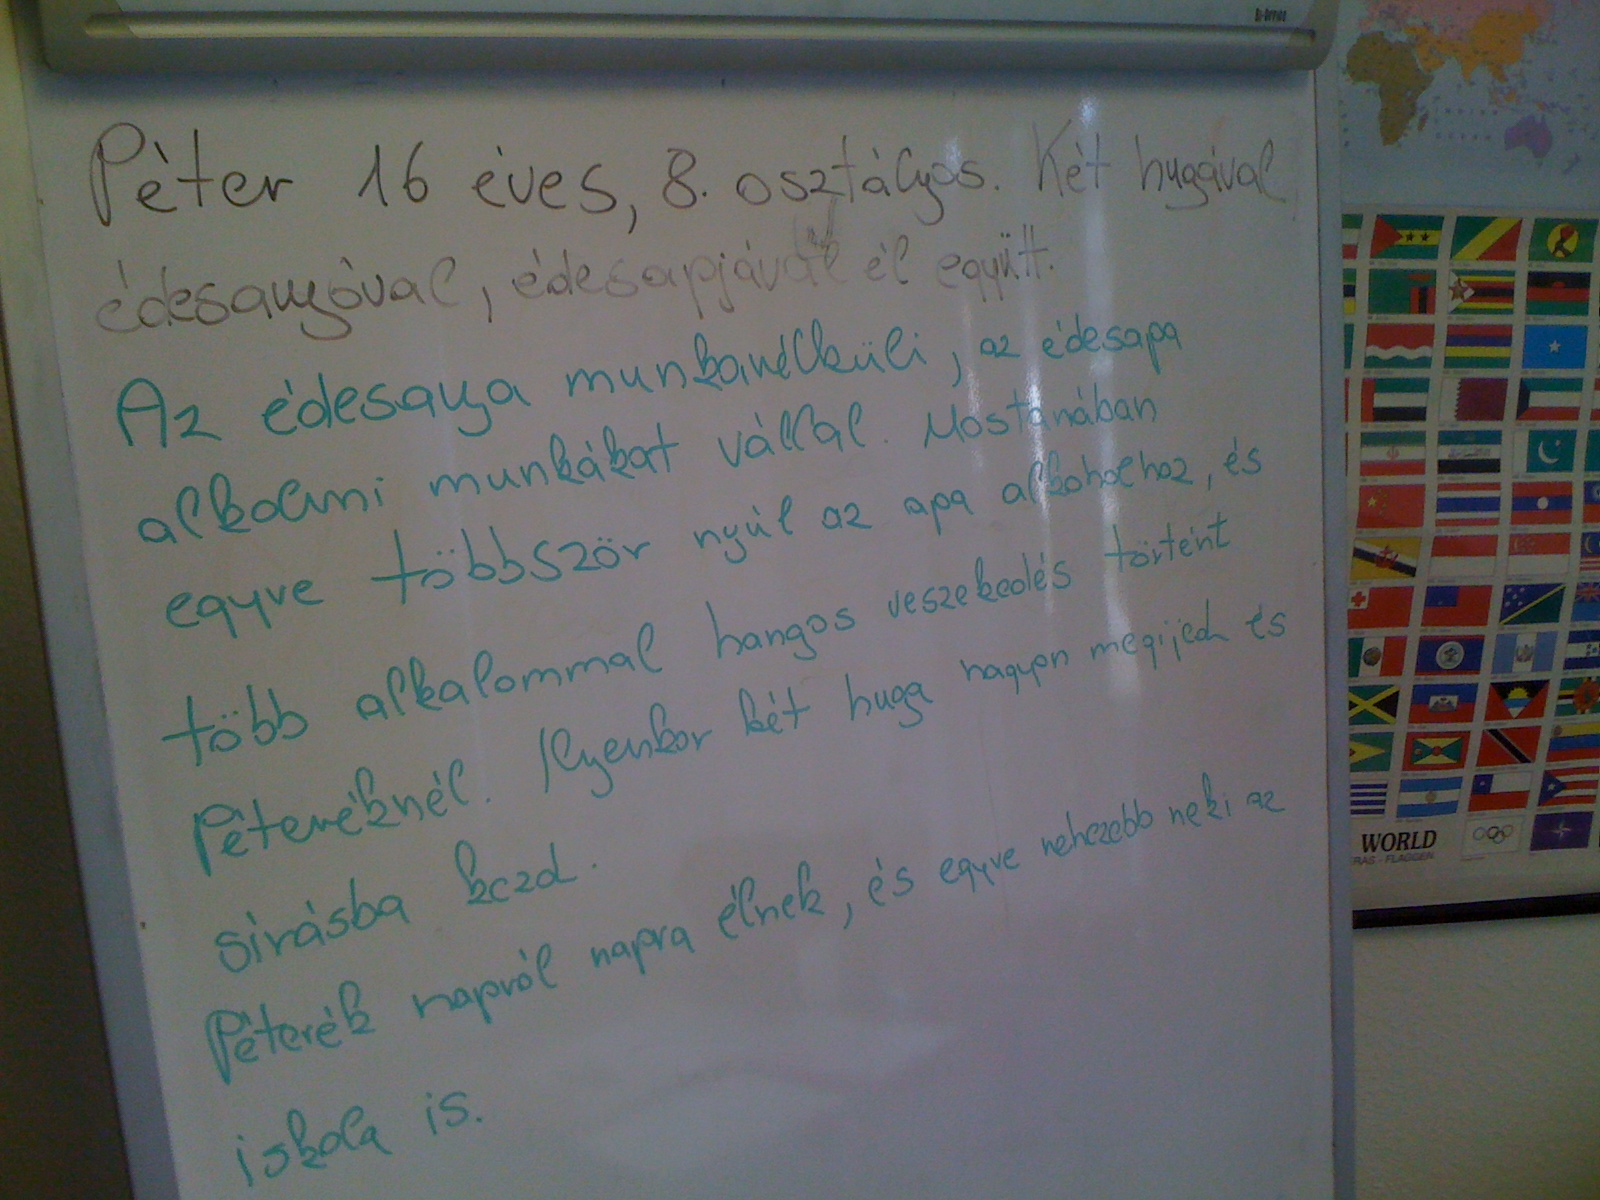 Péter 16 éves, 8. osztályos. Két hugával,
édesanyával, édesapjával él együtt.
Az édesanya munkanélküli, az édesapa
alkalmi munkákat vállal. Mostanában
egyre többször nyúl az apa alkoholhoz, és
több alkalommal hangos veszekedés történt
Péteréknél. Ilyenkor két huga nagyon megijed és
sirásba kezd.
Péterék napról napra élnek, és egyre nehezebb neki az
iskola is.
WORLD
FLAGGEN